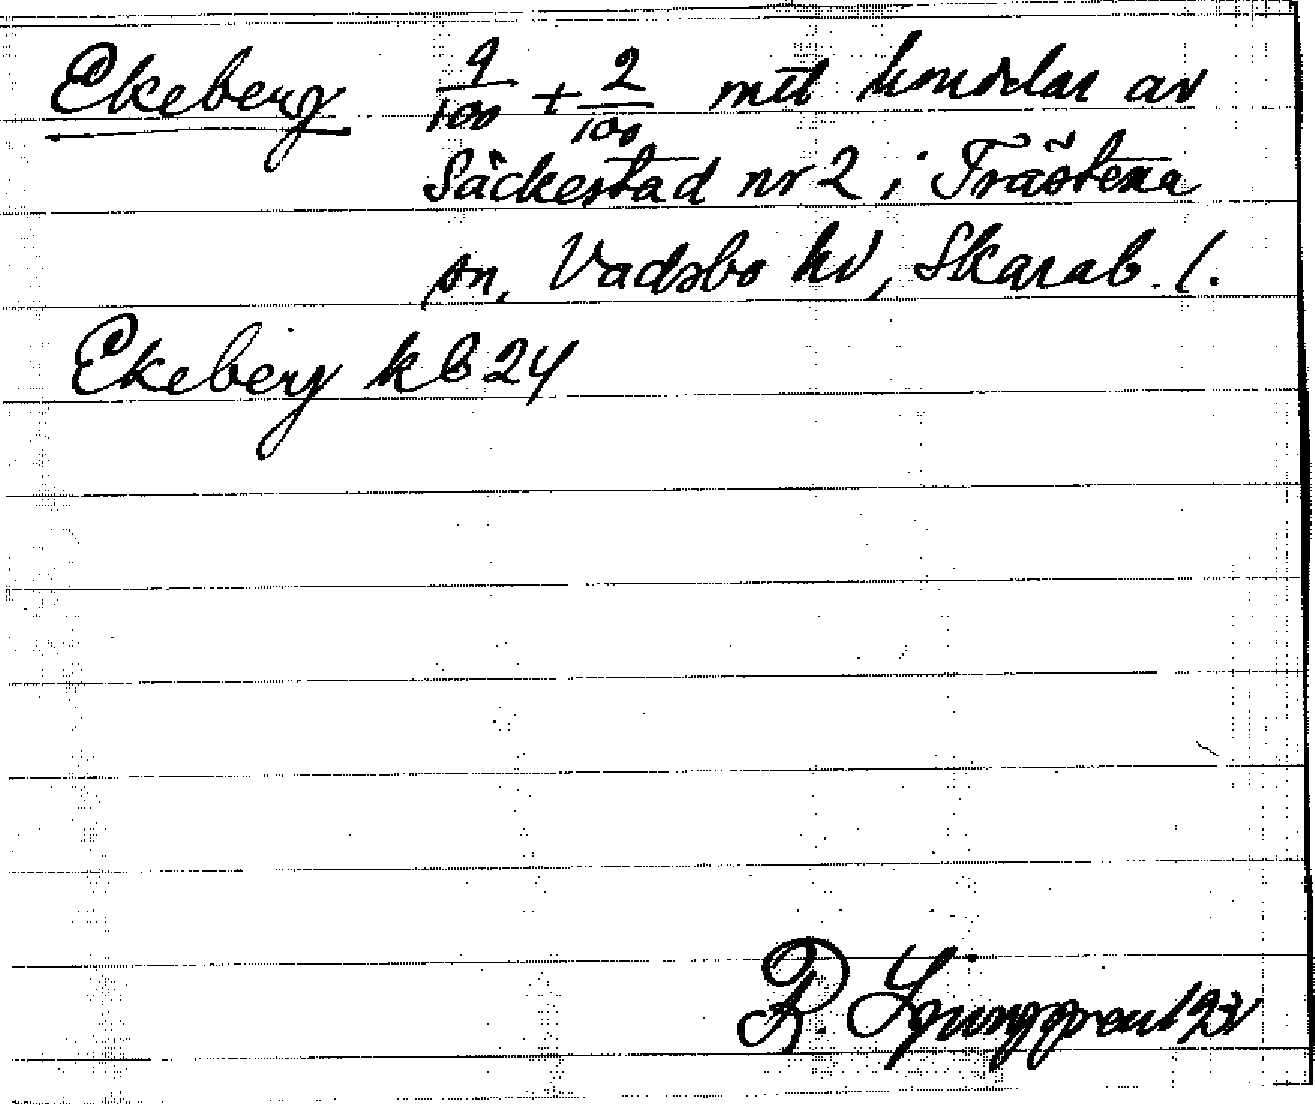 Ekeberg 9/100 + 2/100 mtl hmdelar av
Säckestad nr 2 i Trästena
sn, Vadsbo hd, Skarab. l.
Ekeberg kb 24
R. Ljunggren 1932